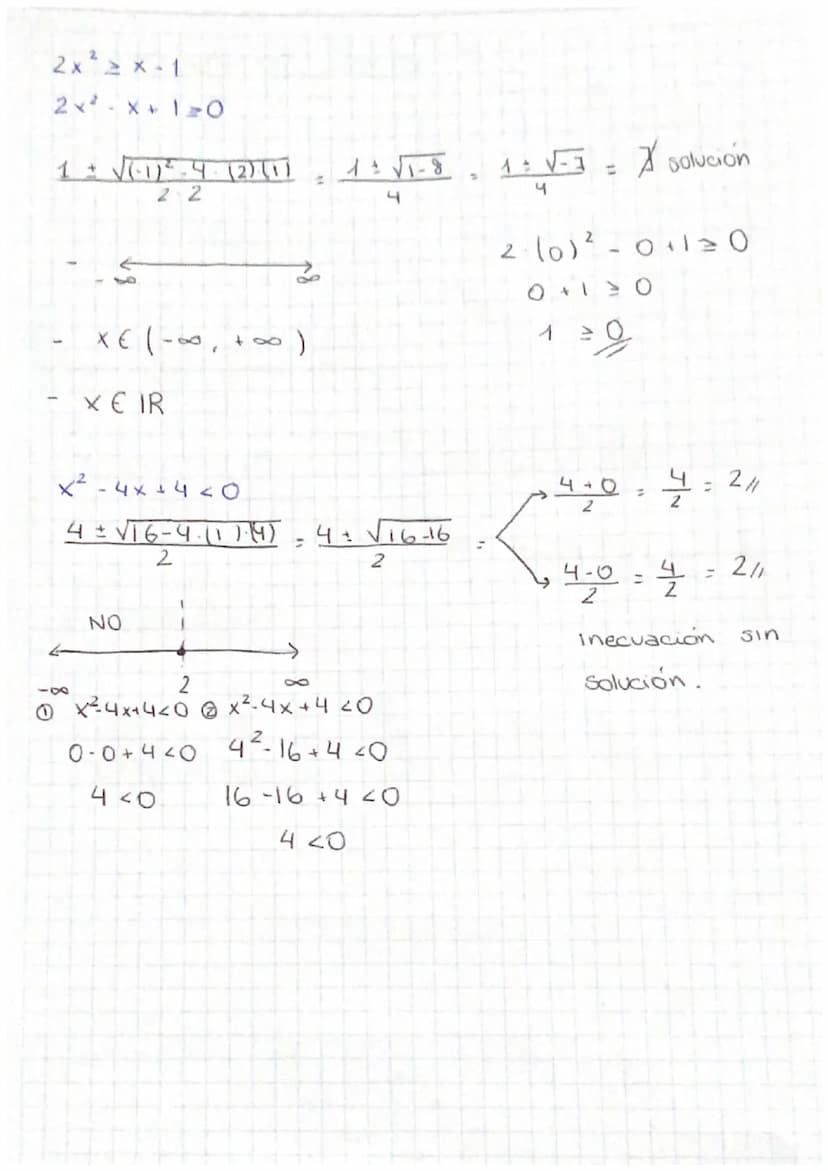 2x² ≥ x - 1
2x² - x + 1 ≥ 0
1 ± √(-1)² - 4 · (2)(1) / 2·2 = 1 ± √1-8 / 4 = 1 ± √-7 / 4 = ∄ solución
- -∞ ∞
2·(0)² - 0 + 1 ≥ 0
0 + 1 ≥ 0
- x ∈ (-∞, +∞)
1 ≥ 0
- x ∈ IR
x² - 4x + 4 < 0
4 ± √16-4·(1)·(4) / 2 = 4 ± √16-16 / 2 =
4+0 / 2 = 4/2 = 2//
4-0 / 2 = 4/2 = 2//
inecuación sin
solución.
NO
-∞ 2 ∞
① x²-4x+4<0 ② x²-4x+4<0
0-0+4<0 4²-16+4<0
4<0 16-16+4<0
4<0